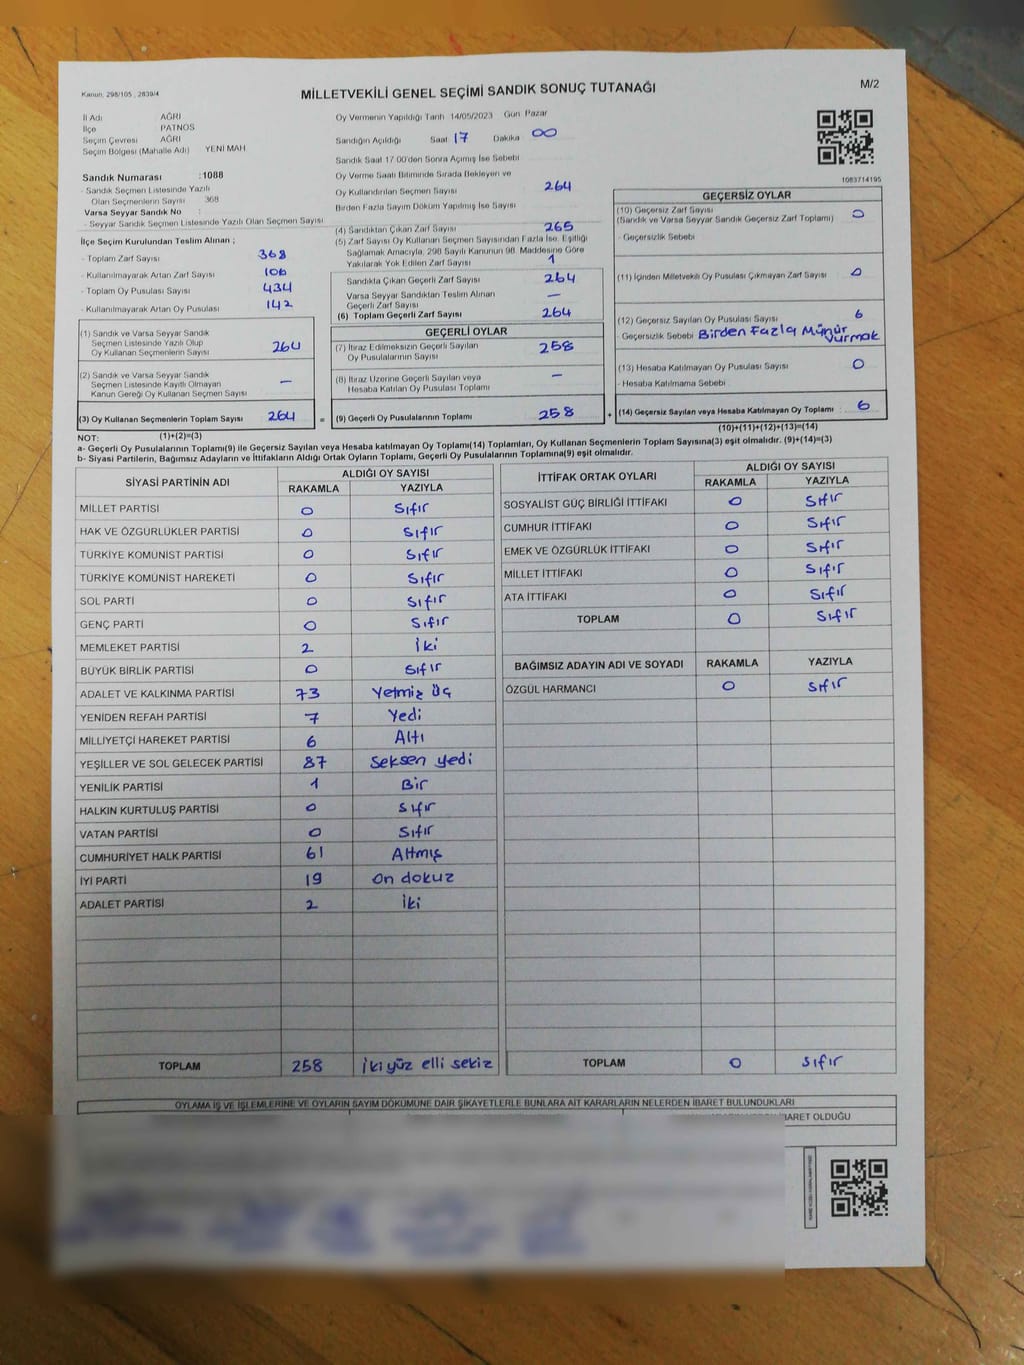 Kanun, 298/105 , 2839/4
MİLLETVEKİLİ GENEL SEÇİMİ SANDIK SONUÇ TUTANAĞI
M/2
İl Adı : AĞRI
İlçe : PATNOS
Seçim Çevresi : AĞRI
Seçim Bölgesi (Mahalle Adı) YENİ MAH
Sandık Numarası :1088
- Sandık Seçmen Listesinde Yazılı
Olan Seçmenlerin Sayısı 368
Varsa Seyyar Sandık No :
- Seyyar Sandık Seçmen Listesinde Yazılı Olan Seçmen Sayısı
İlçe Seçim Kurulundan Teslim Alınan ;
- Toplam Zarf Sayısı 368
- Kullanılmayarak Artan Zarf Sayısı 106
- Toplam Oy Pusulası Sayısı 434
- Kullanılmayarak Artan Oy Pusulası 142
(1) Sandık ve Varsa Seyyar Sandık
Seçmen Listesinde Yazılı Olup
Oy Kullanan Seçmenlerin Sayısı 264
(2) Sandık ve Varsa Seyyar Sandık
Seçmen Listesinde Kayıtlı Olmayan
Kanun Gereği Oy Kullanan Seçmen Sayısı —
(3) Oy Kullanan Seçmenlerin Toplam Sayısı 264 =
Oy Vermenin Yapıldığı Tarih 14/05/2023 Gün Pazar
Sandığın Açıldığı Saat 17 Dakika 00
Sandık Saat 17:00'den Sonra Açımış İse Sebebi
Oy Verme Saati Bitiminde Sırada Bekleyen ve
Oy Kullandırılan Seçmen Sayısı 264
Birden Fazla Sayım Döküm Yapılmış İse Sayısı
(4) Sandıktan Çıkan Zarf Sayısı 265
(5) Zarf Sayısı Oy Kullanan Seçmen Sayısından Fazla İse, Eşitliği
Sağlamak Amacıyla, 298 Sayılı Kanunun 98. Maddesine Göre
Yakılarak Yok Edilen Zarf Sayısı 1
Sandıkta Çıkan Geçerli Zarf Sayısı 264
Varsa Seyyar Sandıktan Teslim Alınan
Geçerli Zarf Sayısı —
(6) Toplam Geçerli Zarf Sayısı 264
GEÇERLİ OYLAR
(7) İtiraz Edilmeksizin Geçerli Sayılan
Oy Pusulalarının Sayısı 258
(8) İtiraz Üzerine Geçerli Sayılan veya
Hesaba Katılan Oy Pusulası Toplamı —
(9) Geçerli Oy Pusulalarının Toplamı 258 +
1083714195
GEÇERSİZ OYLAR
(10) Geçersiz Zarf Sayısı
(Sandık ve Varsa Seyyar Sandık Geçersiz Zarf Toplamı) 0
- Geçersizlik Sebebi
(11) İçinden Milletvekili Oy Pusulası Çıkmayan Zarf Sayısı 0
(12) Geçersiz Sayılan Oy Pusulası Sayısı 6
- Geçersizlik Sebebi Birden Fazla Münür
Vurmak
(13) Hesaba Katılmayan Oy Pusulası Sayısı 0
- Hesaba Katılmama Sebebi
(14) Geçersiz Sayılan veya Hesaba Katılmayan Oy Toplamı : 6
NOT: (1)+(2)=(3) (10)+(11)+(12)+(13)=(14)
a- Geçerli Oy Pusulalarının Toplamı(9) ile Geçersiz Sayılan veya Hesaba katılmayan Oy Toplamı(14) Toplamları, Oy Kullanan Seçmenlerin Toplam Sayısına(3) eşit olmalıdır. (9)+(14)=(3)
b- Siyasi Partilerin, Bağımsız Adayların ve İttifakların Aldığı Ortak Oyların Toplamı, Geçerli Oy Pusulalarının Toplamına(9) eşit olmalıdır.
SİYASİ PARTİNİN ADI ALDIĞI OY SAYISI
RAKAMLA YAZIYLA
MİLLET PARTİSİ 0 Sıfır
HAK VE ÖZGÜRLÜKLER PARTİSİ 0 Sıfır
TÜRKİYE KOMÜNİST PARTİSİ 0 Sıfır
TÜRKİYE KOMÜNİST HAREKETİ 0 Sıfır
SOL PARTİ 0 Sıfır
GENÇ PARTİ 0 Sıfır
MEMLEKET PARTİSİ 2 İki
BÜYÜK BİRLİK PARTİSİ 0 Sıfır
ADALET VE KALKINMA PARTİSİ 73 Yetmiş Üç
YENİDEN REFAH PARTİSİ 7 Yedi
MİLLİYETÇİ HAREKET PARTİSİ 6 Altı
YEŞİLLER VE SOL GELECEK PARTİSİ 87 Seksen yedi
YENİLİK PARTİSİ 1 Bir
HALKIN KURTULUŞ PARTİSİ 0 Sıfır
VATAN PARTİSİ 0 Sıfır
CUMHURİYET HALK PARTİSİ 61 Altmış
İYİ PARTİ 19 On dokuz
ADALET PARTİSİ 2 İki
TOPLAM 258 İki yüz elli sekiz
İTTİFAK ORTAK OYLARI ALDIĞI OY SAYISI
RAKAMLA YAZIYLA
SOSYALİST GÜÇ BİRLİĞİ İTTİFAKI 0 Sıfır
CUMHUR İTTİFAKI 0 Sıfır
EMEK VE ÖZGÜRLÜK İTTİFAKI 0 Sıfır
MİLLET İTTİFAKI 0 Sıfır
ATA İTTİFAKI 0 Sıfır
TOPLAM 0 Sıfır
BAĞIMSIZ ADAYIN ADI VE SOYADI RAKAMLA YAZIYLA
ÖZGÜL HARMANCI 0 Sıfır
TOPLAM 0 Sıfır
OYLAMA İŞ VE İŞLEMLERİNE VE OYLARIN SAYIM DÖKÜMÜNE DAİR ŞİKAYETLERLE BUNLARA AİT KARARLARIN NELERDEN İBARET BULUNDUKLARI
İBARET OLDUĞU